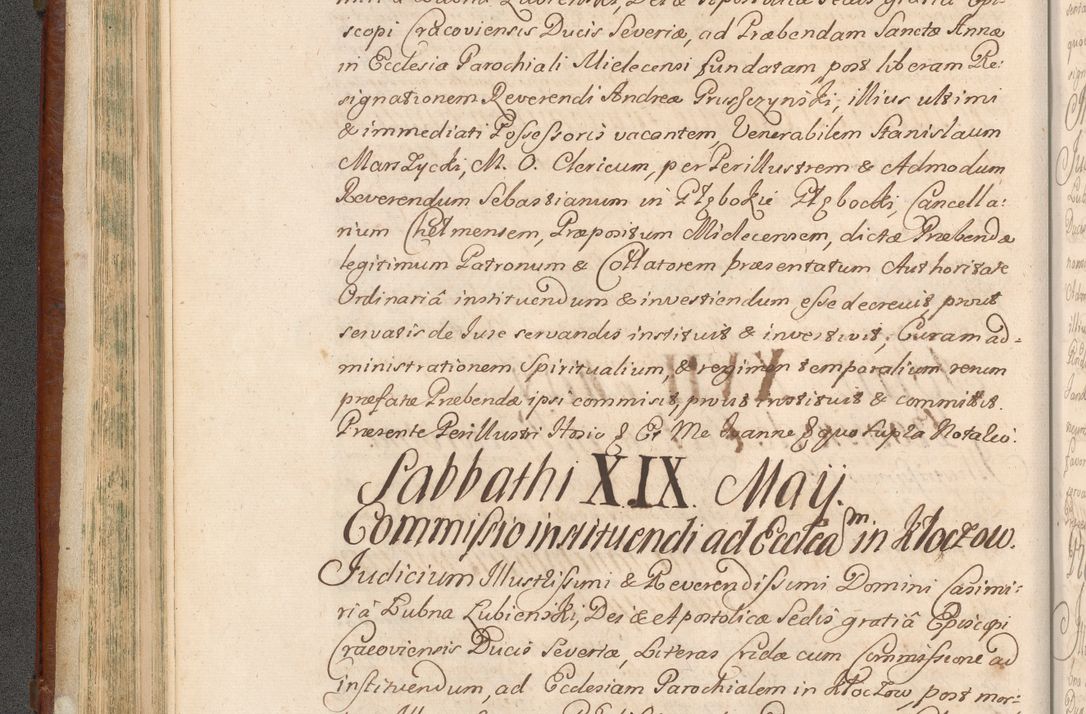 scopi Cracoviensis Ducis Severiæ, ad Præbendam Sanctæ Annæ
in Ecclesia Parochiali Mielecensi fundatam post liberam Re-
signationem Reverendi Andreæ Prusczynski, illius ultimi
& immediati Possessoris vacantem, Venerabilem Stanislaum
Marszycki, M. O. Clericum, per Perillustrem & Admodum
Reverendum Sebastianum in Głębokie Głębocki, Cancella-
rium Chelmensem, Præpositum Mielecensem, dictæ Præbendæ
legitimum Patronum & Collatorem præsentatum Authoritate
Ordinariâ instituendum & investiendum esse decrevit prout
servatis de Jure servandis instituit & investivit, Curam ad-
ministrationem Spiritualium, & regimen temporalium rerum
præfatæ Præbendæ ipsi commisit, prout instituit & committit.
Præsente Perillustri Hosio & Et Me Joanne & quo supra Notario.
Sabbathi XIX. Maij.
Commissio instituendi ad Eccleam in Kłoczow.
Judicium Illustrissimi & Reverendissimi Domini Casimi-
ri â Łubna Lubienski, Dei & Apostolicæ Sedis gratiâ Episcopi
Cracoviensis Ducis Severiæ, Literas Cridæ cum Commissione ad
instituendum, ad Ecclesiam Parochialem in Kłoczow, post mor-